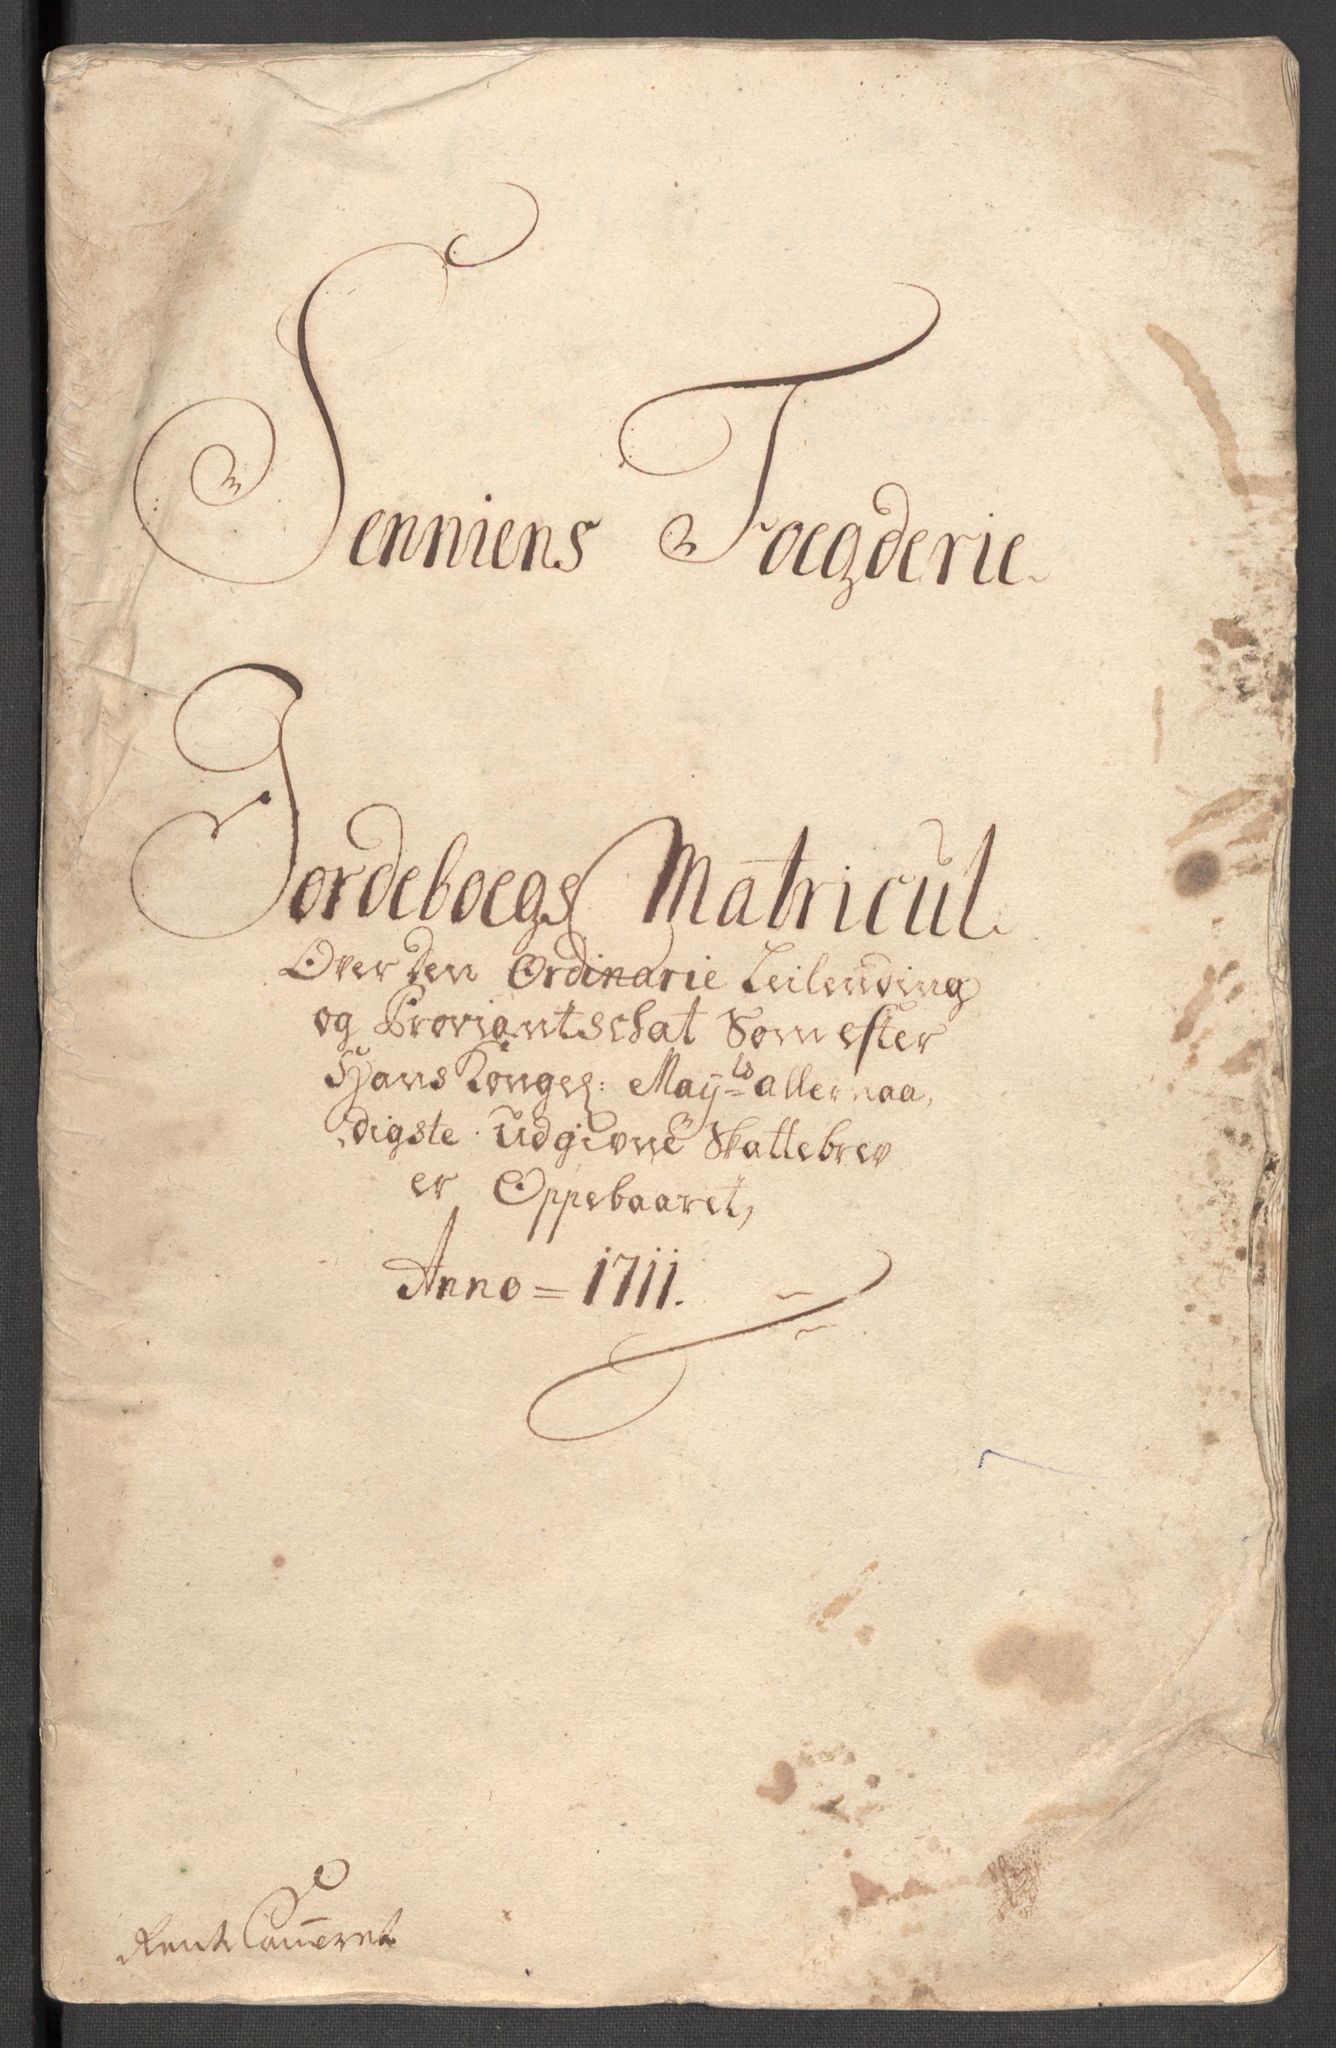 Senniens Foegderie.
Jordeboegs Matricul.
Over den Ordinarie Leilending
og Proviantschat Som efter
Hans Kongel: Maÿ=ts allernaa,
digste Udgivne Skattebrev
er Oppebaaret,
Anno = 1711.
Rente Cammeret